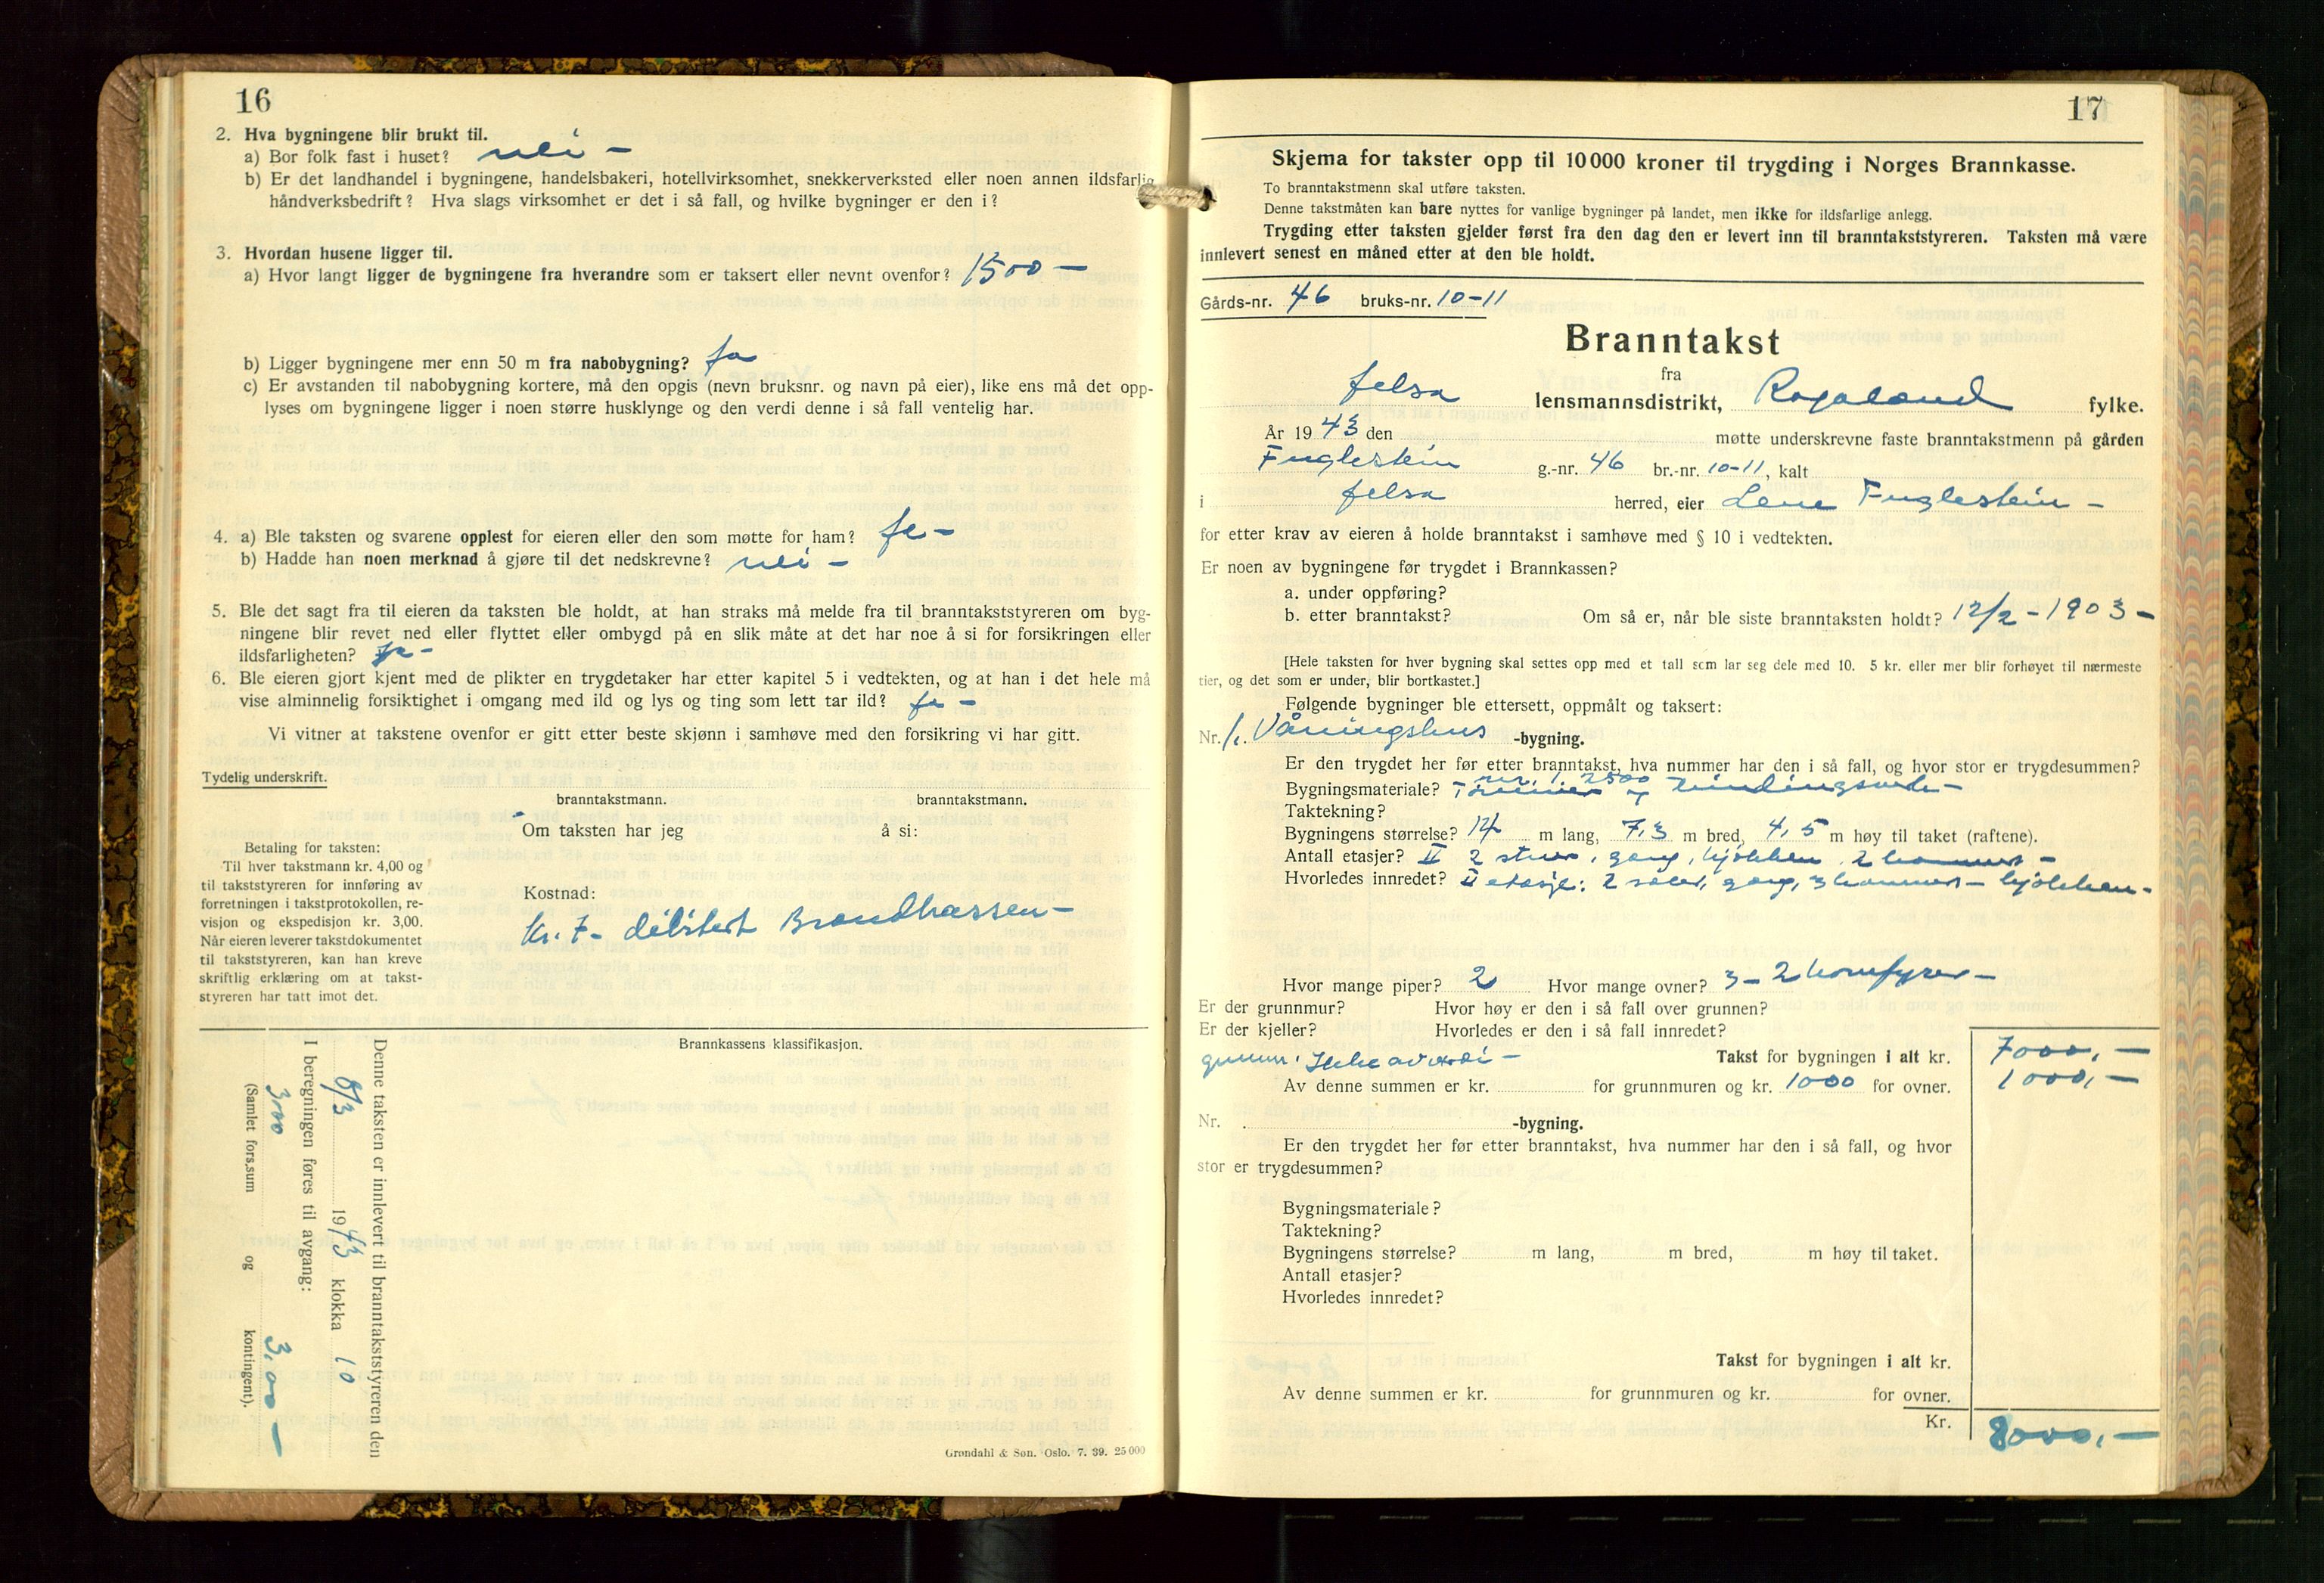 16
2. Hva bygningene blir brukt til.
a) Bor folk fast i huset? nei -
b) Er det landhandel i bygningene, handelsbakeri, hotellvirksomhet, snekkerverksted eller noen annen ildsfarlig
håndverksbedrift? Hva slags virksomhet er det i så fall, og hvilke bygninger er den i?
3. Hvordan husene ligger til.
a) Hvor langt ligger de bygningene fra hverandre som er taksert eller nevnt ovenfor? 1500 -
b) Ligger bygningene mer enn 50 m fra nabobygning? ja
c) Er avstanden til nabobygning kortere, må den opgis (nevn bruksnr. og navn på eier), like ens må det opp-
lyses om bygningene ligger i noen større husklynge og den verdi denne i så fall ventelig har.
4. a) Ble taksten og svarene opplest for eieren eller den som møtte for ham? ja -
b) Hadde han noen merknad å gjøre til det nedskrevne? nei -
5. Ble det sagt fra til eieren da taksten ble holdt, at han straks må melde fra til branntakststyreren om byg-
ningene blir revet ned eller flyttet eller ombygd på en slik måte at det har noe å si for forsikringen eller
ildsfarligheten? ja -
6. Ble eieren gjort kjent med de plikter en trygdetaker har etter kapitel 5 i vedtekten, og at han i det hele må
vise alminnelig forsiktighet i omgang med ild og lys og ting som lett tar ild? ja -
Vi vitner at takstene ovenfor er gitt etter beste skjønn i samhøve med den forsikring vi har gitt.
Tydelig underskrift.
branntakstmann. branntakstmann.
Om taksten har jeg å si:
Betaling for taksten:
Til hver takstmann kr. 4,00 og
til takststyreren for innføring av
forretningen i takstprotokollen, re-
visjon og ekspedisjon kr. 3,00.
Når eieren leverer takstdokumentet
til takststyreren, kan han kreve
skriftlig erklæring om at takst-
styreren har tatt imot det.
Kostnad:
Kr. 7 - debitert Brandkassen -
Brannkassens klassifikasjon.
Denne taksten er innlevert til branntakststyreren den
8/3 1943 klokka 10
I beregningen føres til avgang:
3000 3,00 -
(Samlet fors.sum og kontingent).
Grøndahl & Søn. Oslo. 7. 39. 25 000
17
Skjema for takster opp til 10 000 kroner til trygding i Norges Brannkasse.
To branntakstmenn skal utføre taksten.
Denne takstmåten kan bare nyttes for vanlige bygninger på landet, men ikke for ildsfarlige anlegg.
Trygding etter taksten gjelder først fra den dag den er levert inn til branntakststyreren. Taksten må være
innlevert senest en måned etter at den ble holdt.
Gårds-nr. 46 bruks-nr. 10-11
Branntakst
fra
Jelsa lensmannsdistrikt, Rogaland fylke.
År 1943 den møtte underskrevne faste branntakstmenn på gården
Fuglestein g.-nr. 46 br.-nr. 10-11, kalt
i Jelsa herred, eier Lene Fuglestein -
for etter krav av eieren å holde branntakst i samhøve med § 10 i vedtekten.
Er noen av bygningene før trygdet i Brannkassen?
a. under oppføring?
b. etter branntakst? Om så er, når ble siste branntaksten holdt? 12/2 - 1903 -
[Hele taksten for hver bygning skal settes opp med et tall som lar seg dele med 10. 5 kr. eller mer blir forhøyet til nærmeste
tier, og det som er under, blir bortkastet.]
Følgende bygninger ble ettersett, oppmålt og taksert:
Nr. 1. Våningshus -bygning.
Er den trygdet her før etter branntakst, hva nummer har den i så fall, og hvor stor er trygdesummen?
nr. 1. 2500
Bygningsmateriale? Tømmer og bindingsverk -
Taktekning?
Bygningens størrelse? 14 m lang, 7,3 m bred, 4,5 m høy til taket (raftene).
Antall etasjer? II 2 stuer, gang, kjøkken, 2 kammers -
Hvorledes innredet? II etasje: 2 saler, gang, 3 kammers - kjøkken -
Hvor mange piper? 2 Hvor mange ovner? 3 - 2 komfyrer -
Er der grunnmur? Hvor høy er den i så fall over grunnen?
Er der kjeller? Hvorledes er den i så fall innredet?
grunnm. Ikke av verdi - Takst for bygningen i alt kr. 7000,-
Av denne summen er kr. for grunnmuren og kr. 1000 for ovner. 1000,-
Nr. -bygning.
Er den trygdet her før etter branntakst, hva nummer har den i så fall, og hvor
stor er trygdesummen?
Bygningsmateriale?
Taktekning?
Bygningens størrelse? m lang, m bred, m høy til taket.
Antall etasjer?
Hvorledes innredet?
Takst for bygningen i alt kr.
Av denne summen er kr. for grunnmuren og kr. for ovner.
Kr. 8000,-